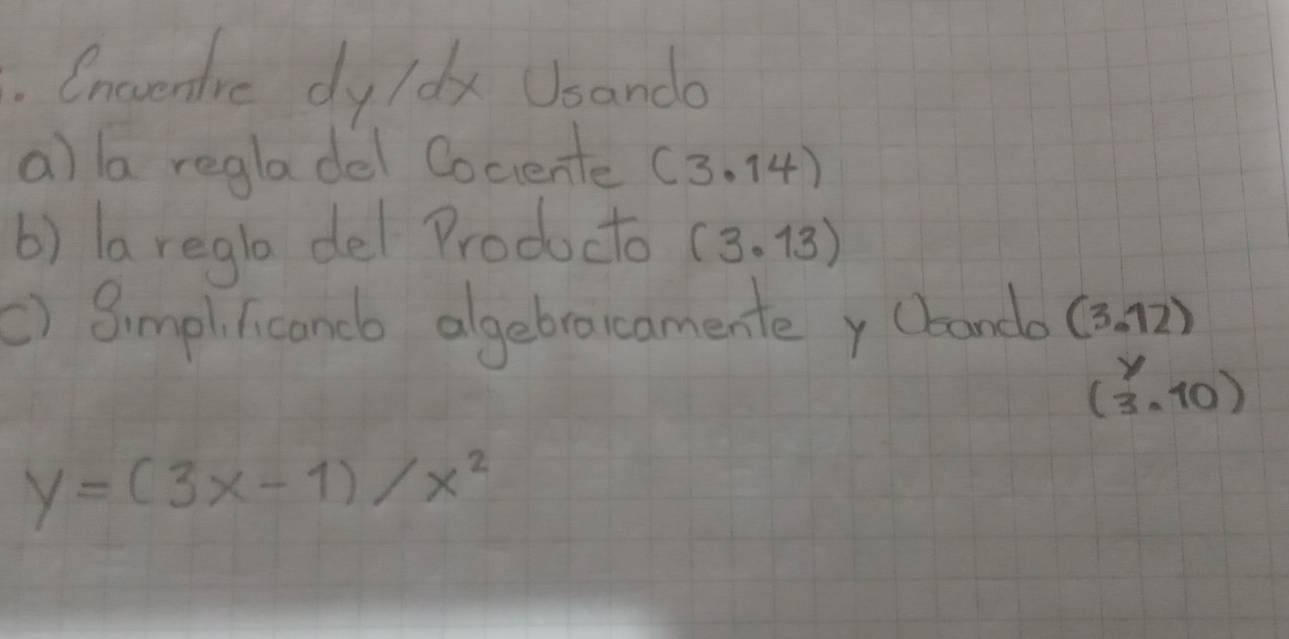 . Encuentre dy/dx Usando
a) la regla del Cociente (3.14)
b) la regla del Producto (3.13)
c) Simplificando algebraicamente y Usando (3.12)
y
(3.10)
y = (3x - 1) / x²